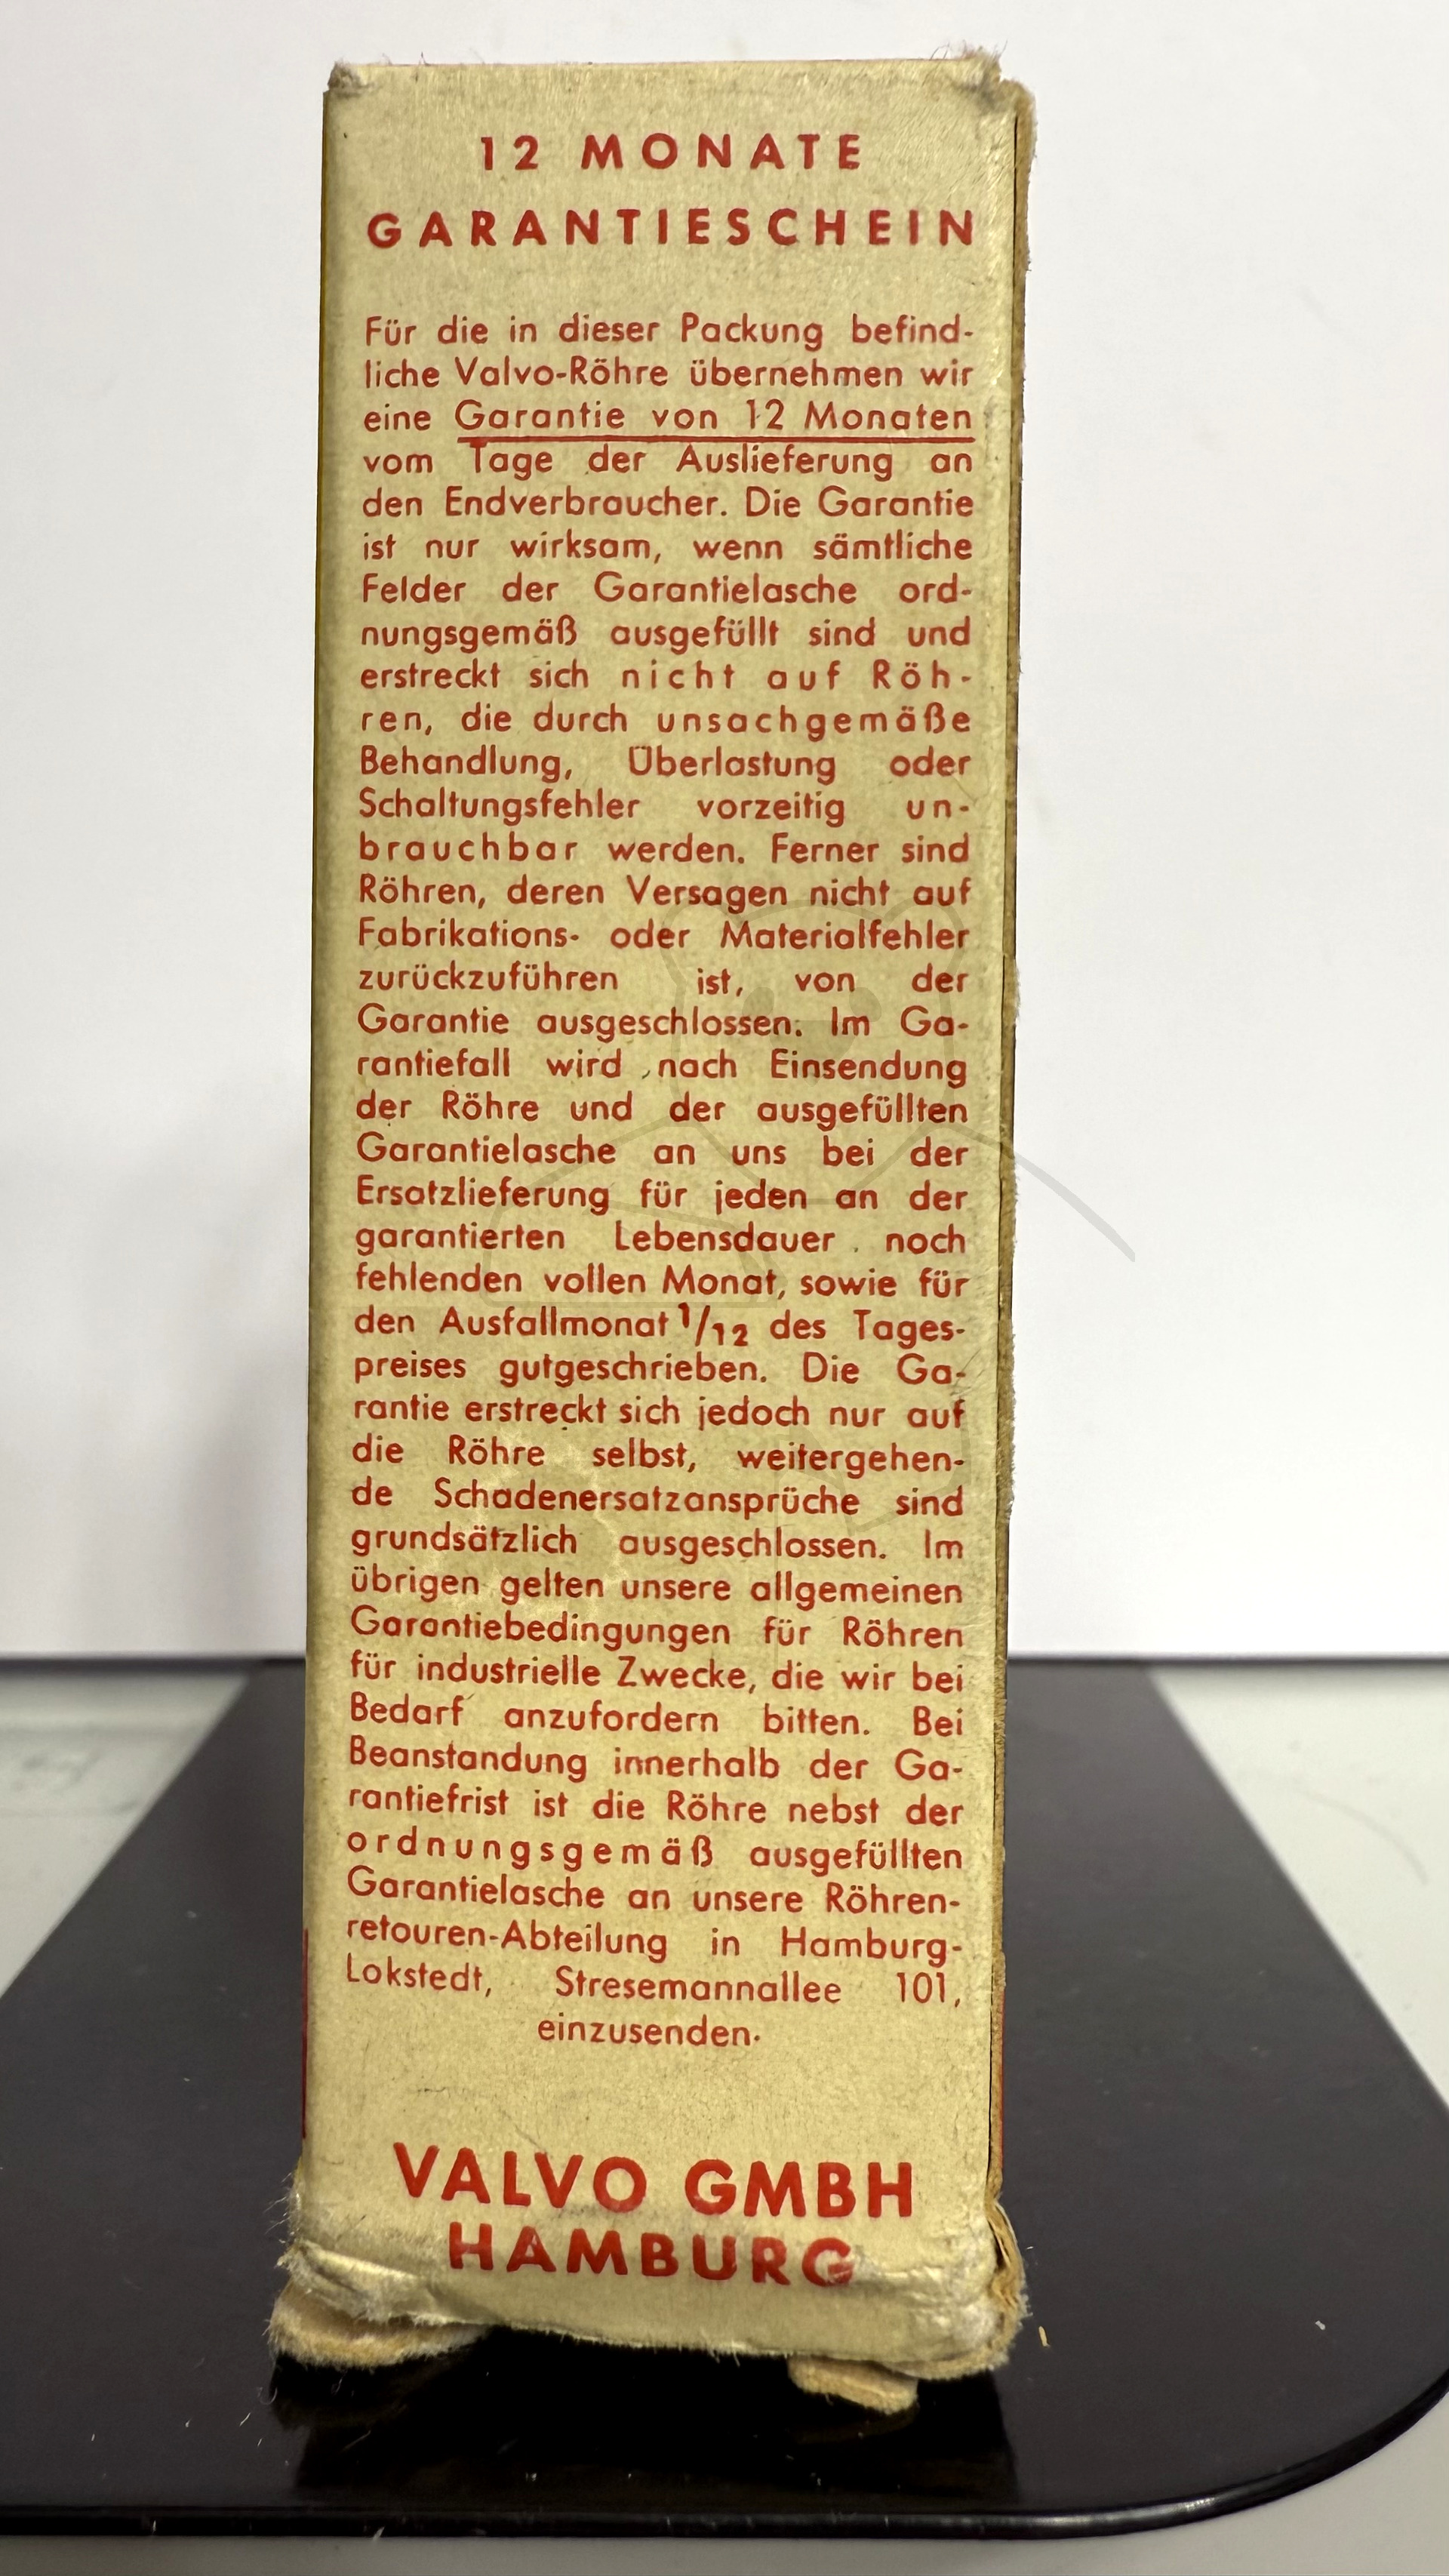 12 MONATE
GARANTIESCHEIN
Für die in dieser Packung befind-
liche Valvo-Röhre übernehmen wir
eine Garantie von 12 Monaten
vom Tage der Auslieferung an
den Endverbraucher. Die Garantie
ist nur wirksam, wenn sämtliche
Felder der Garantielasche ord-
nungsgemäß ausgefüllt sind und
erstreckt sich nicht auf Röh-
ren, die durch unsachgemäße
Behandlung, Überlastung oder
Schaltungsfehler vorzeitig un-
brauchbar werden. Ferner sind
Röhren, deren Versagen nicht auf
Fabrikations- oder Materialfehler
zurückzuführen ist, von der
Garantie ausgeschlossen. Im Ga-
rantiefall wird nach Einsendung
der Röhre und der ausgefüllten
Garantielasche an uns bei der
Ersatzlieferung für jeden an der
garantierten Lebensdauer noch
fehlenden vollen Monat, sowie für
den Ausfallmonat 1/12 des Tages-
preises gutgeschrieben. Die Ga-
rantie erstreckt sich jedoch nur auf
die Röhre selbst, weitergehen-
de Schadenersatzansprüche sind
grundsätzlich ausgeschlossen. Im
übrigen gelten unsere allgemeinen
Garantiebedingungen für Röhren
für industrielle Zwecke, die wir bei
Bedarf anzufordern bitten. Bei
Beanstandung innerhalb der Ga-
rantiefrist ist die Röhre nebst der
ordnungsgemäß ausgefüllten
Garantielasche an unsere Röhren-
retouren-Abteilung in Hamburg-
Lokstedt, Stresemannallee 101,
einzusenden.
VALVO GMBH
HAMBURG